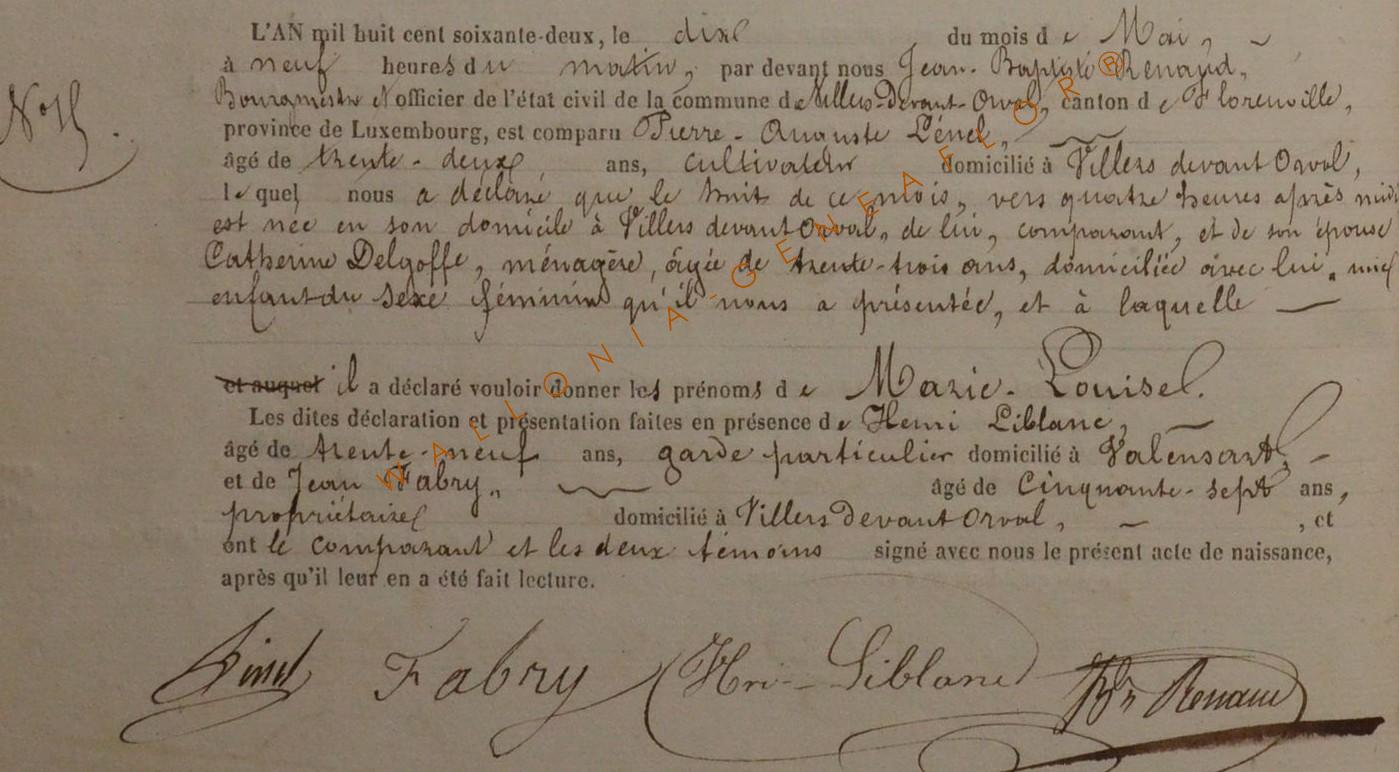 L'AN mil huit cent soixante-deux, le dix du mois de Mai,
à neuf heures du matin, par devant nous Jean-Baptiste Renaud,
Bourgmestre et officier de l'état civil de la commune de Villers-Devant-Orval, canton de Florenville,
N° 15.
province de Luxembourg, est comparu Pierre-Auguste
âgé de trente-deux ans, cultivateur domicilié à Villers devant Orval,
lequel nous a déclaré que le huit de ce mois, vers quatre heures après midi
est née en son domicile à Villers devant Orval, de lui, comparant, et de son épouse
Catherine Delgoffe, ménagère, âgée de trente-trois ans, domiciliée avec lui, une
enfant du sexe féminin qu'il nous a présentée, et à laquelle
et auquel il a déclaré vouloir donner les prénoms de Marie-Louise.
Les dites déclaration et présentation faites en présence de Henri Liblanc,
âgé de trente-neuf ans, garde particulier domicilié à Valensart,
et de Jean Fabry, âgé de Cinquante-sept ans,
propriétaire domicilié à Villers Devant Orval, , et
ont le comparant et les deux témoins signé avec nous le présent acte de naissance,
après qu'il leur en a été fait lecture.
Fabry Hri Liblanc Renaud
WALLONIA-GENEAFLOR®